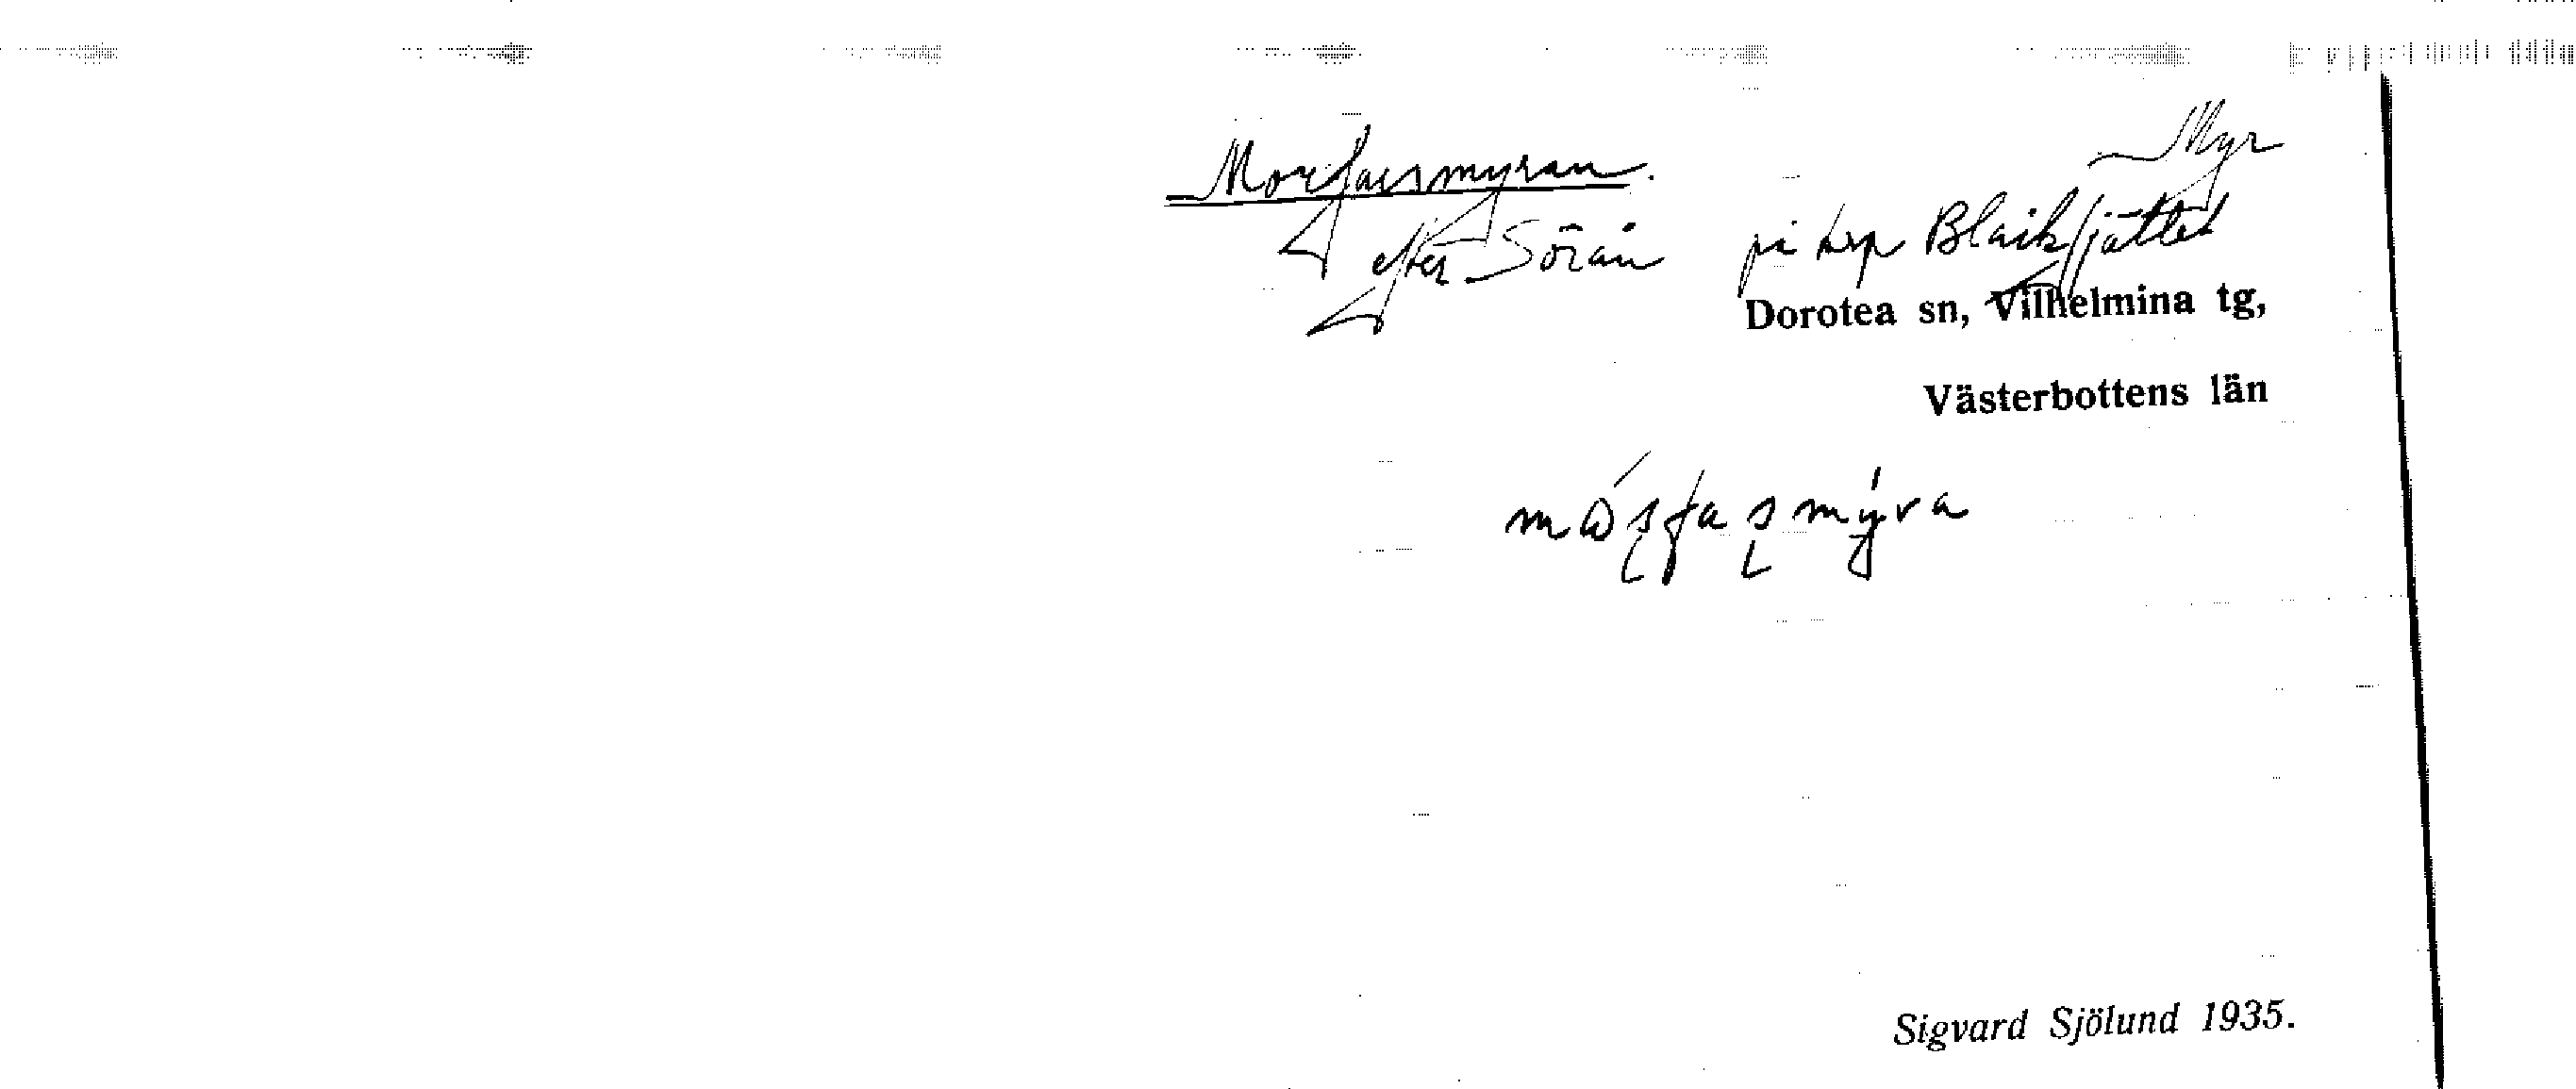 Morfarsmyran. Myr
efter Sörån på krp Blaikfjället
Dorotea sn, Vilhelmina tg,
Västerbottens län
Sigvard Sjölund 1935.